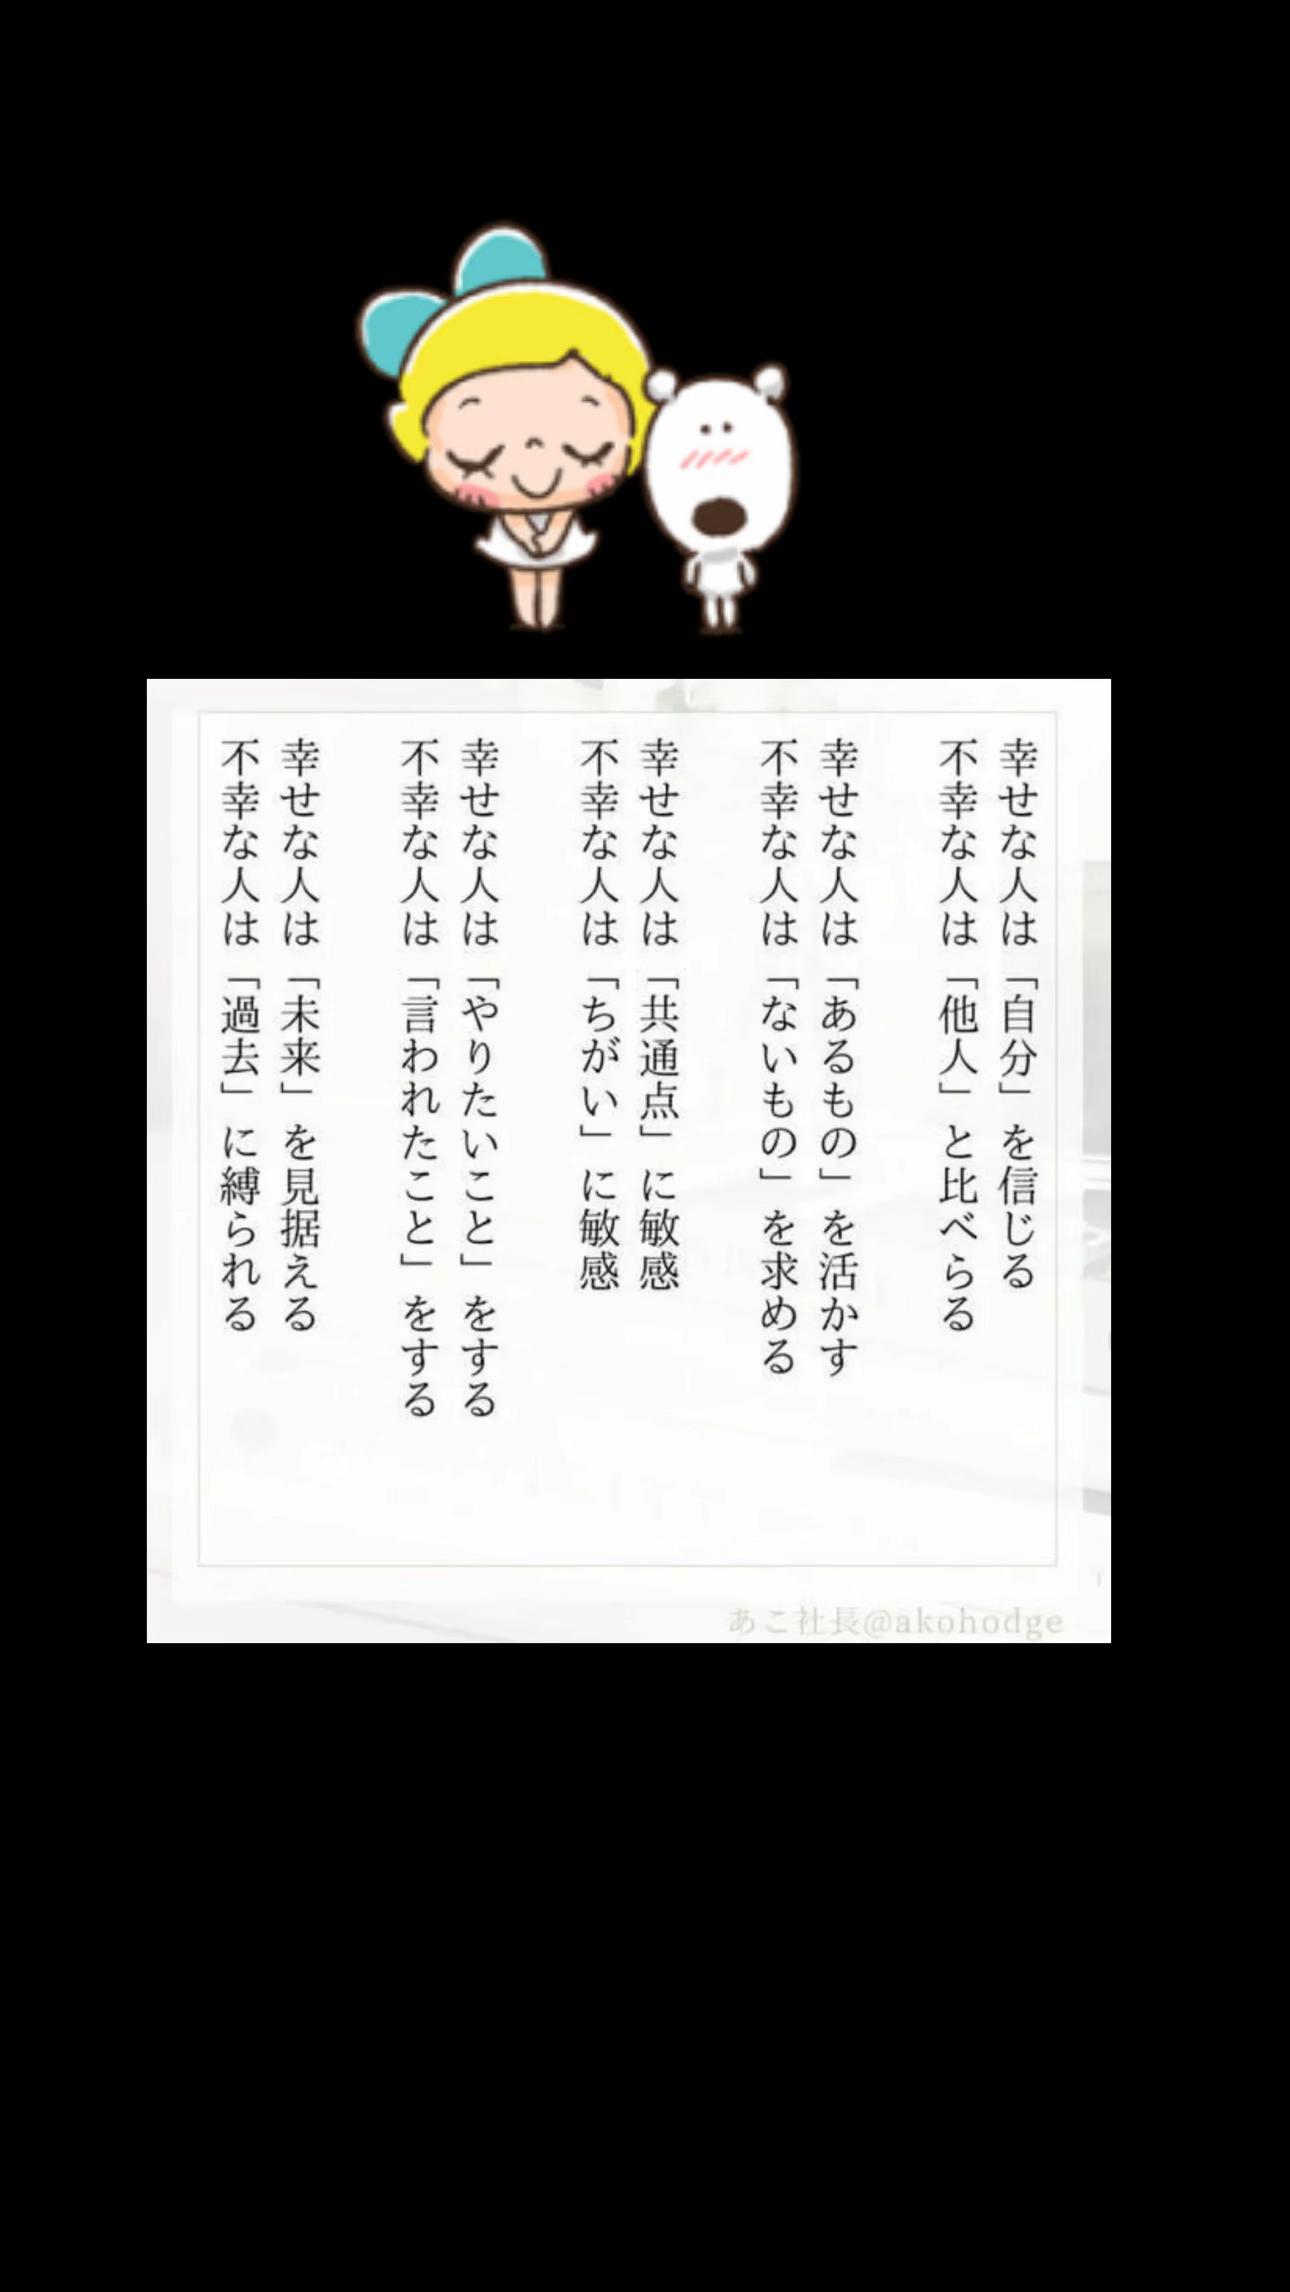 幸せな人は「自分」を信じる
不幸な人は「他人」と比べらる
幸せな人は「あるもの」を活かす
不幸な人は「ないもの」を求める
幸せな人は「共通点」に敏感
不幸な人は「ちがい」に敏感
幸せな人は「やりたいこと」をする
不幸な人は「言われたこと」をする
幸せな人は「未来」を見据える
不幸な人は「過去」に縛られる
あこ社長@akohodge